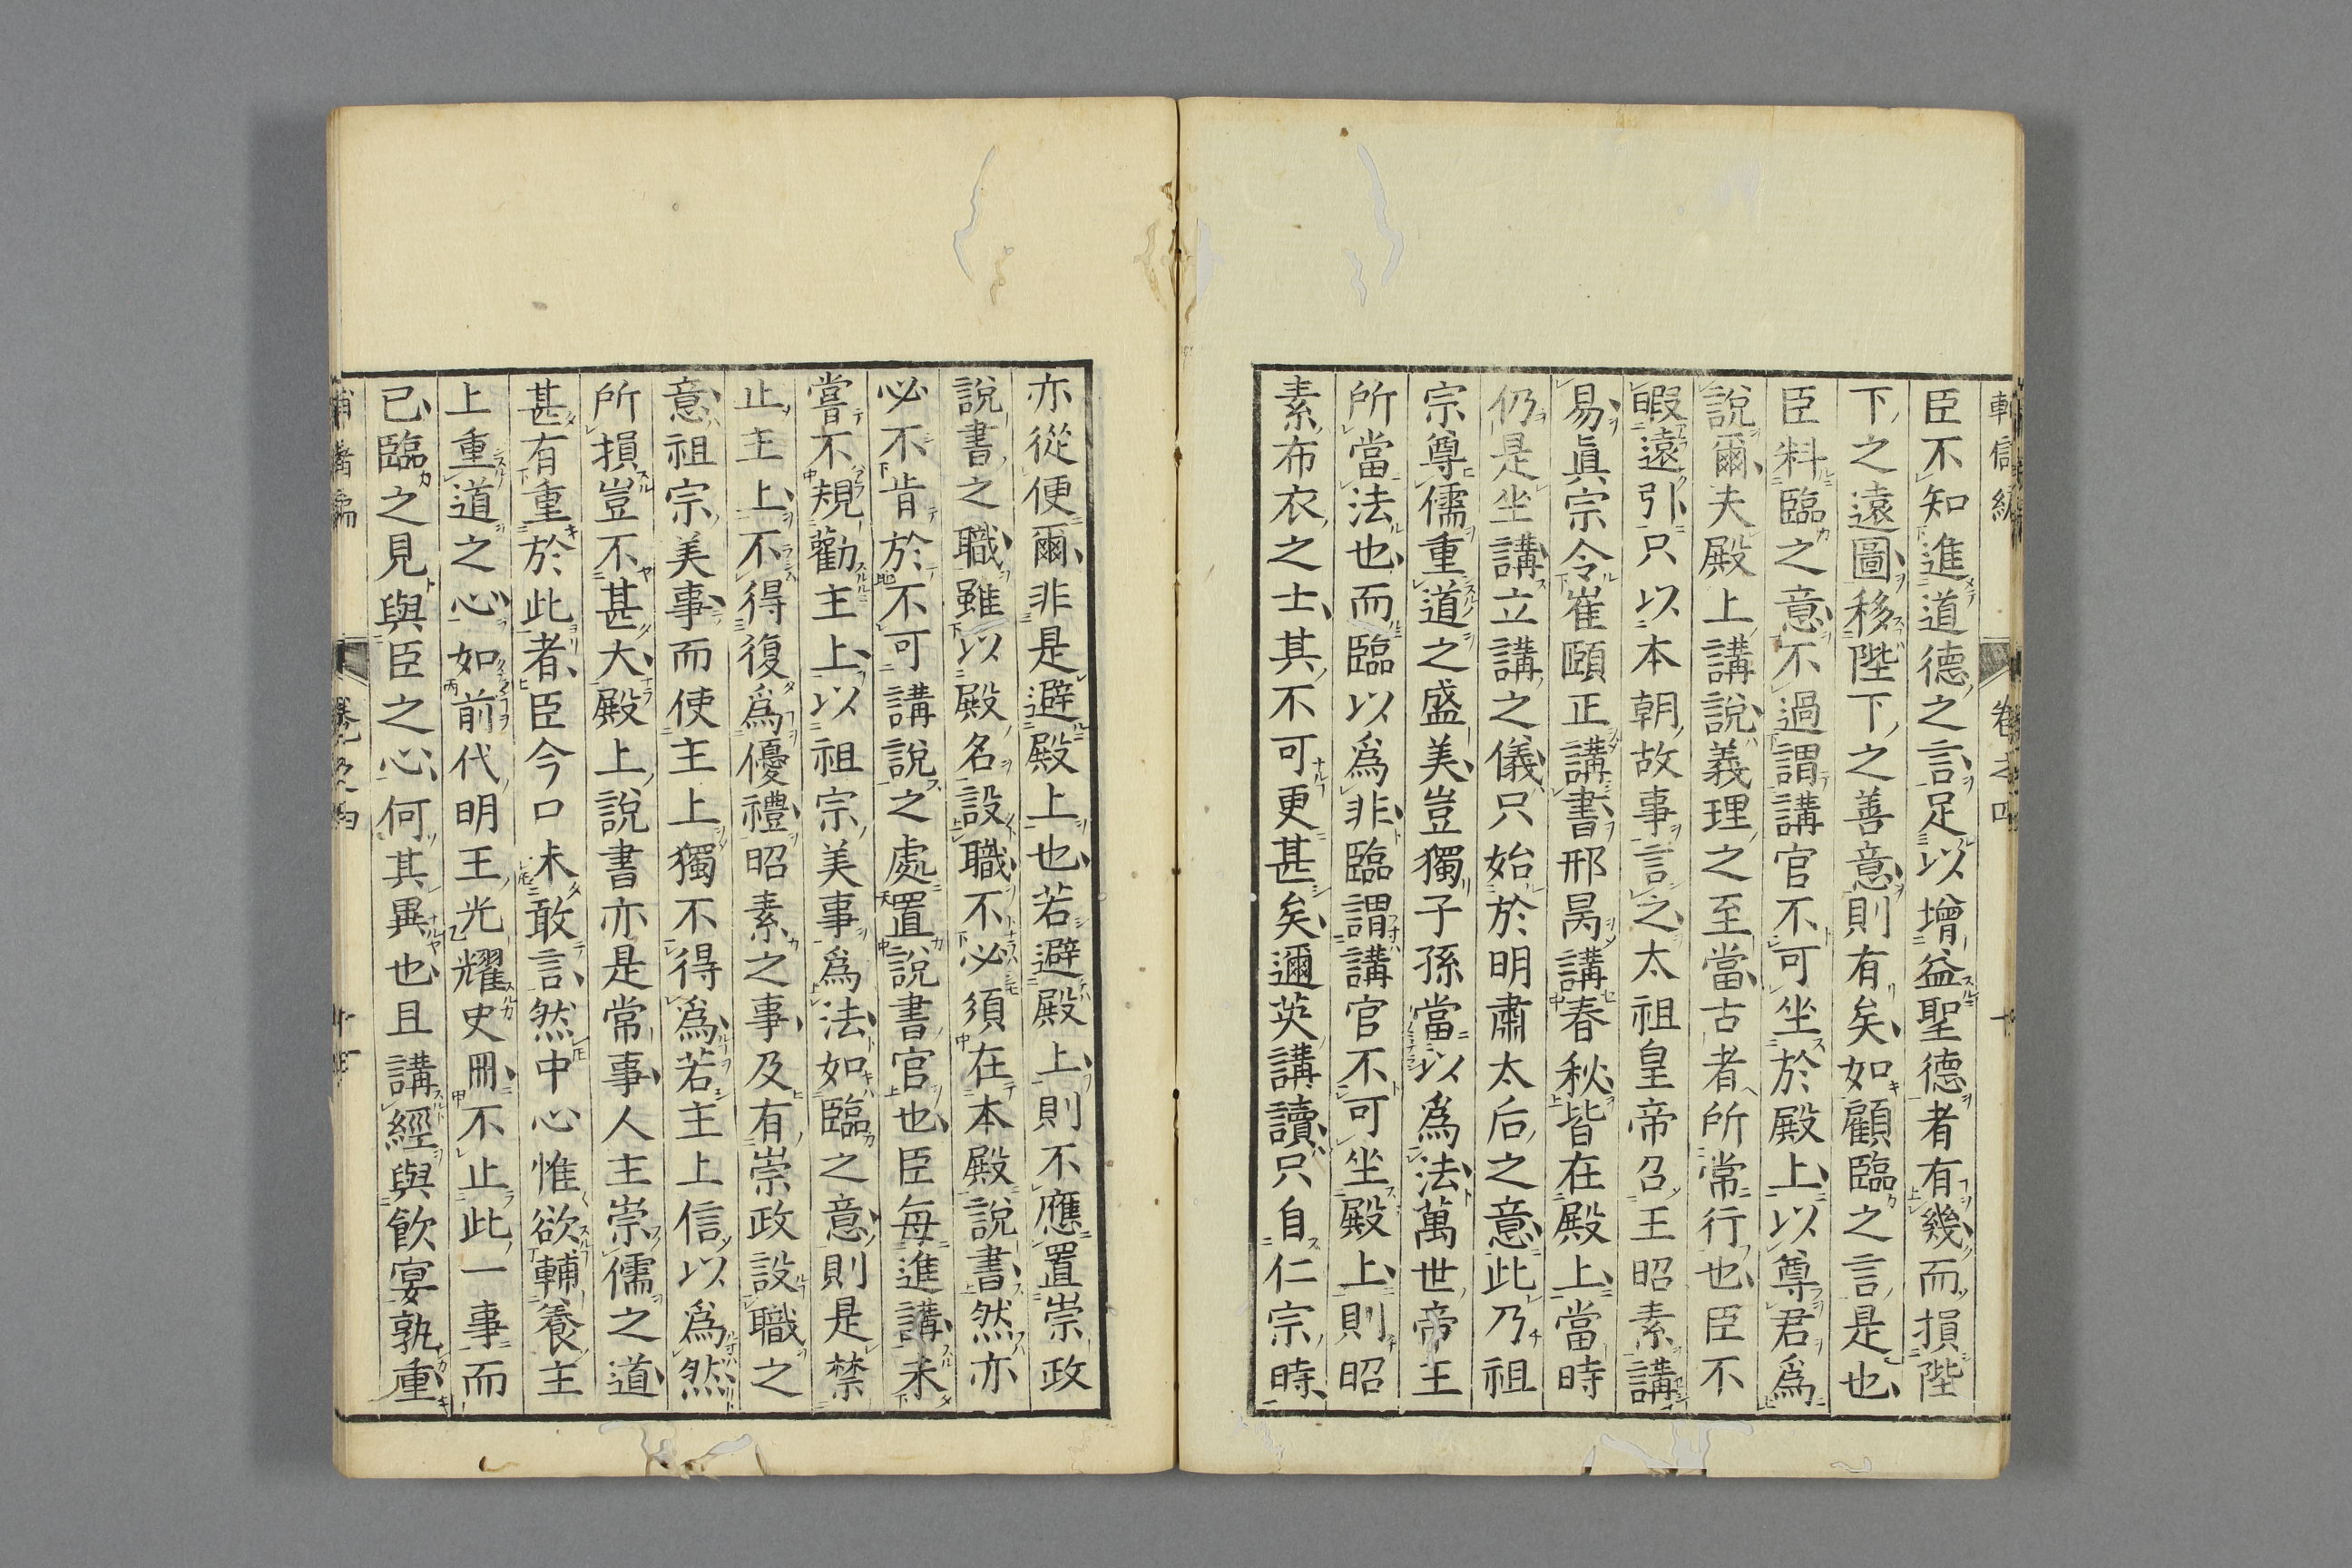 臣不知進道德之言足以增益聖德者有幾而損陛
下之遠圖移陛下之善意則有矣如顧臨之言是也
臣料臨之意不過謂講官不可坐於殿上以尊君爲
說爾夫殿上講說義理之至當古者所常行也臣不
暇遠引只以本朝故事言之太祖皇帝召王昭素講
易眞宗令崔頤正講書邢昺講春秋皆在殿上當時
仍是坐講立講之儀只始於明肅太后之意此乃祖
宗尊儒重道之盛美豈獨子孫當以爲法萬世帝王
所當法也而臨以爲非臨謂講官不可坐殿上則昭
素布衣之士其不可更甚矣邇英講讀只自仁宗時
亦從便爾非是避殿上也若避殿上則不應置崇政
說書之職雖以殿名設職不必須在本殿說書然亦
必不肯於不可講說之處置說書官也臣每進講未
嘗不規勸主上以祖宗美事爲法如臨之意則是禁
止主上不得復爲優禮昭素之事及有崇政設職之
意祖宗美事而使主上獨不得爲若主上信以爲然
所損豈不甚大殿上說書亦是常事人主崇儒之道
甚有重於此者臣今口未敢言然中心惟欲輔養主
上重道之心如前代明王光耀史冊不止此一事而
已臨之見與臣之心何其異也且講經與飲宴孰重
卷之四